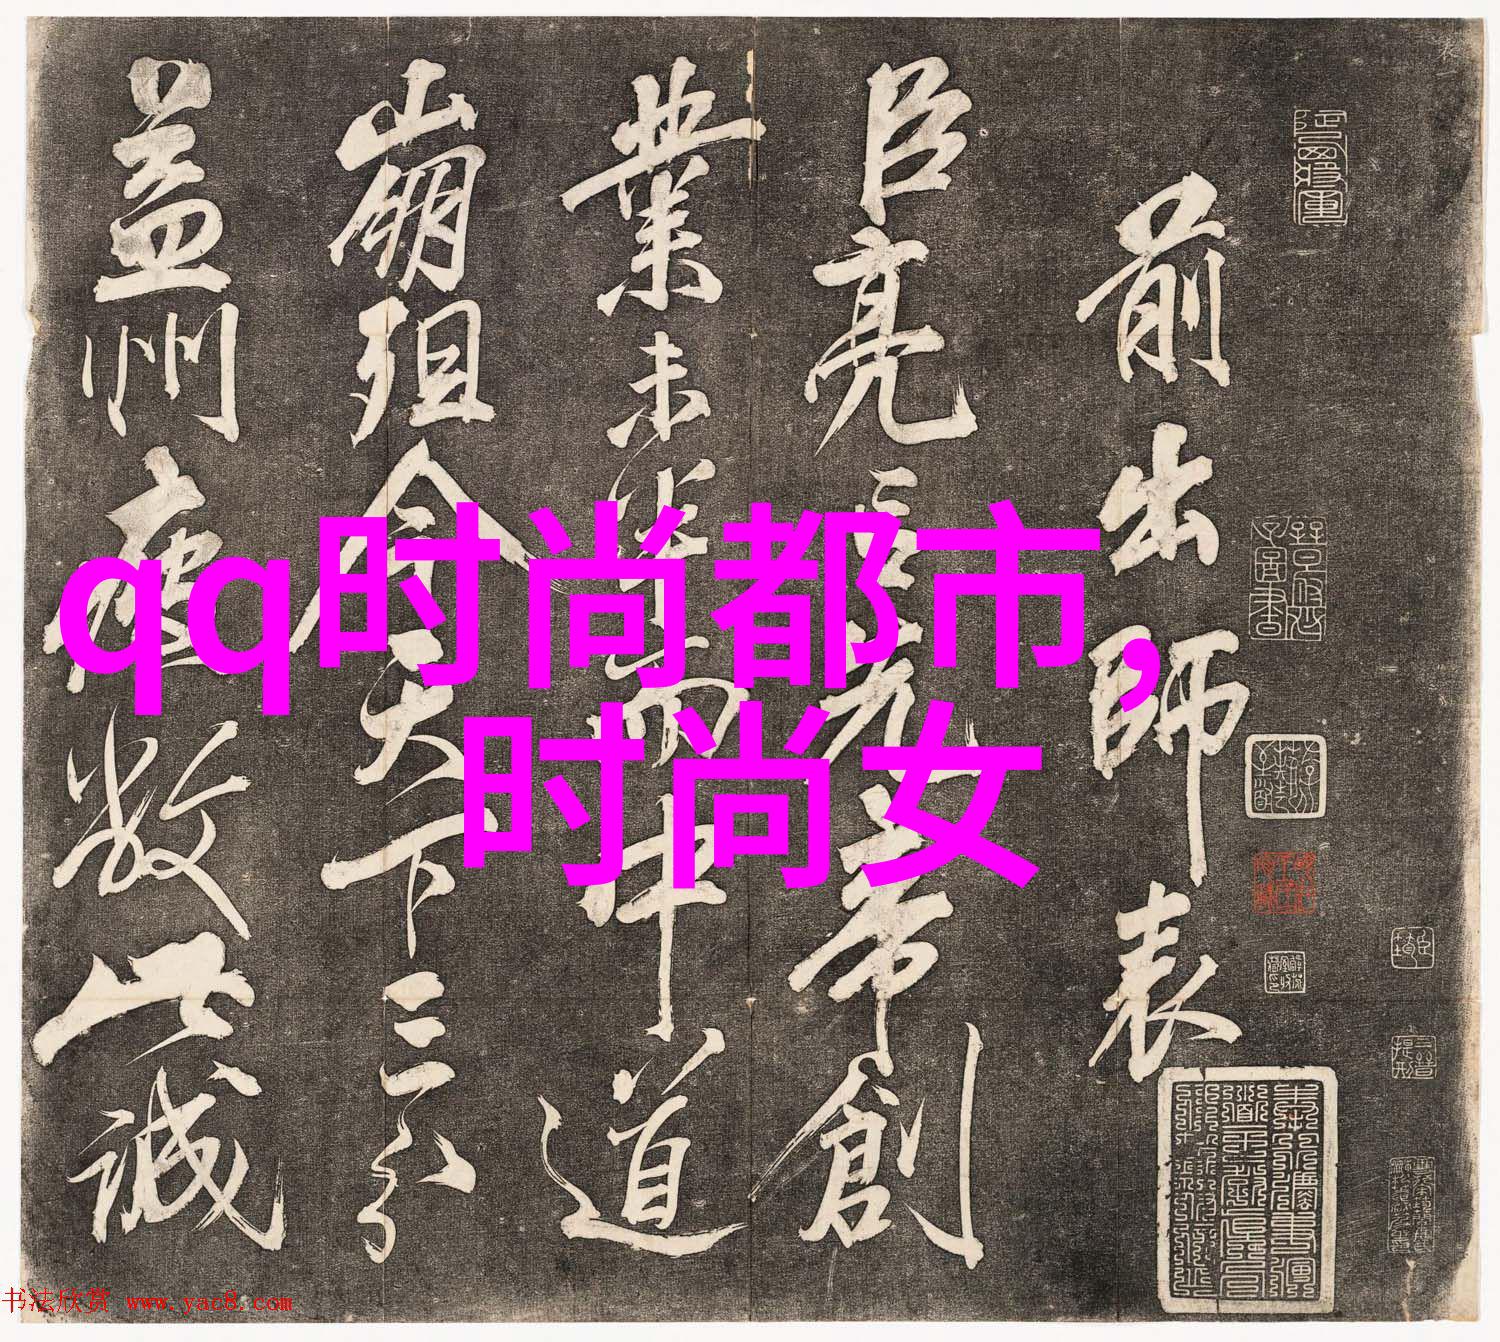 前出師表
臣亮言先帝創
業未半而中道
崩殂今天下三分
益州疲敝此誠
qq时尚都市,
时尚女
书法欣赏 www.yac8.com